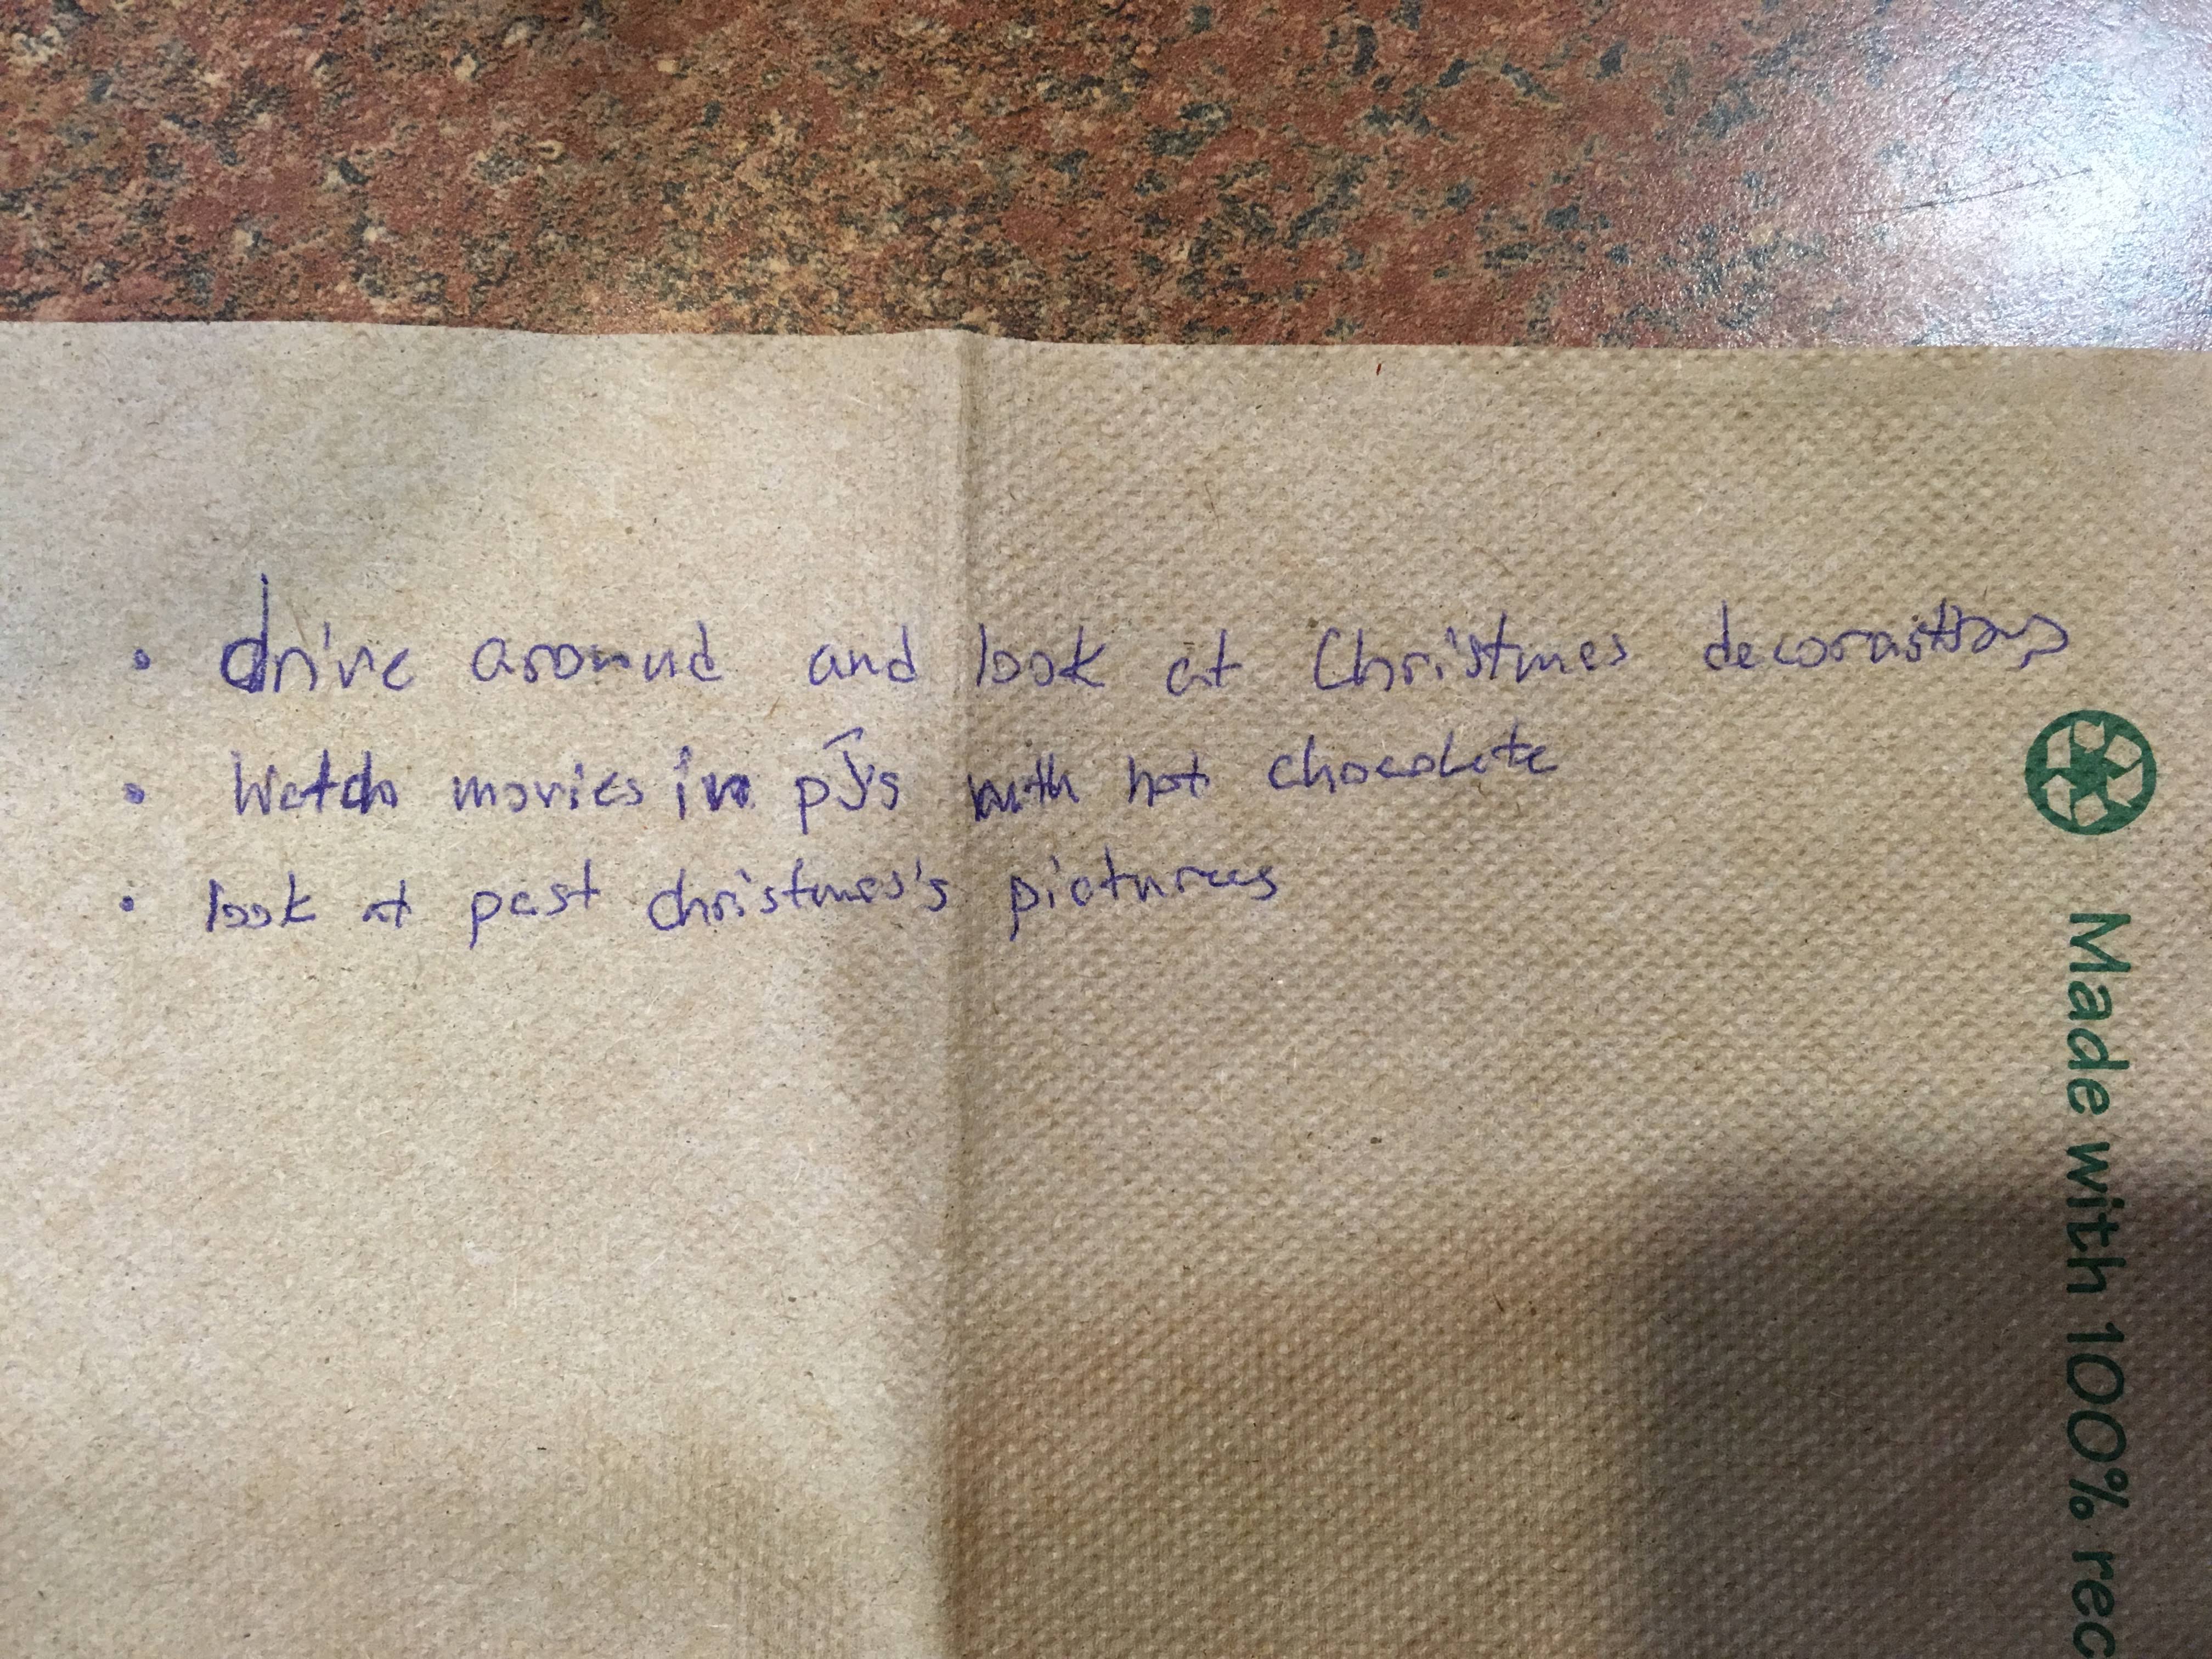 • drive around and look at Christmas decorations
• Watch movies in pJ's with hot chocolate
• look at past christmas's pictures
Made with 100% rec